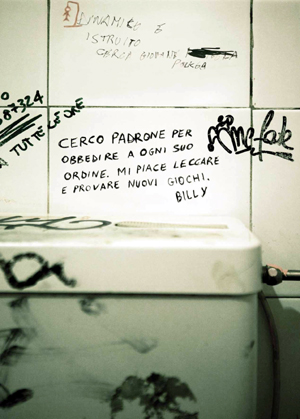 DINAMICO E
ISTRUITO
CERCA GIOVANE
PORCA
87324
A TUTTE LE ORE
CERCO PADRONE PER
OBBEDIRE A OGNI SUO
ORDINE. MI PIACE LECCARE
E PROVARE NUOVI GIOCHI.
BILLY